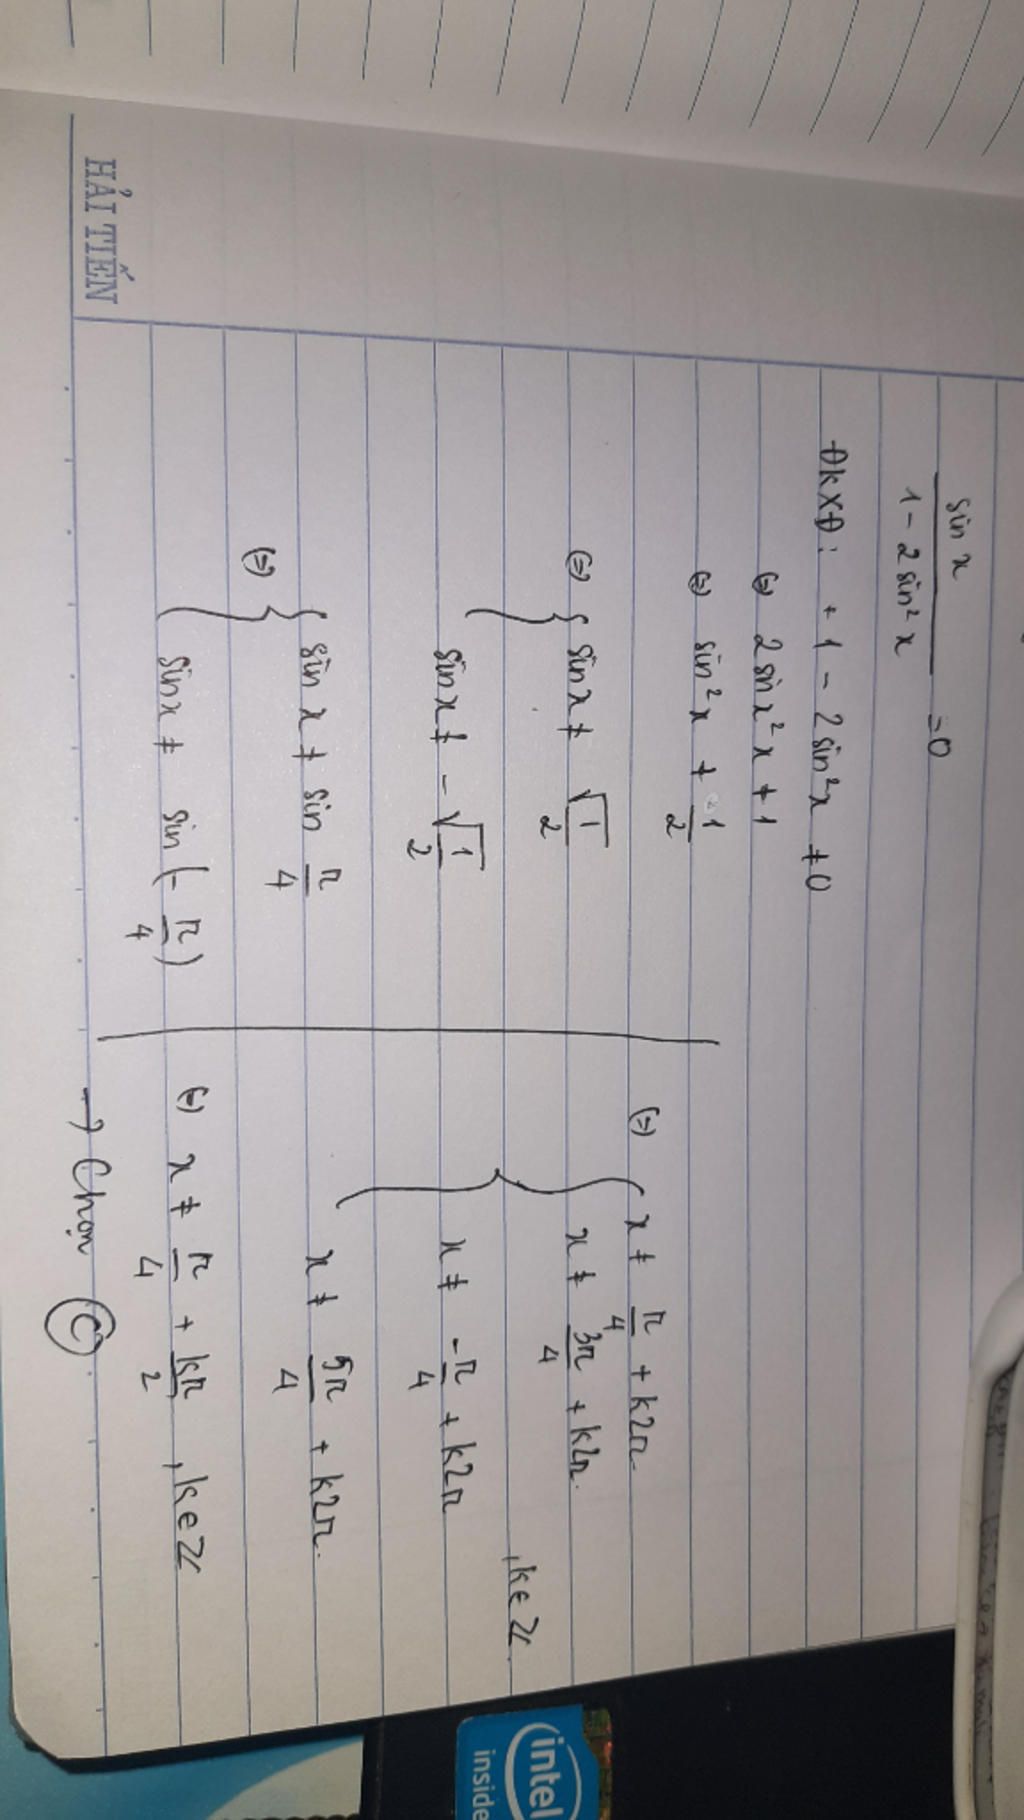 sin x
——— = 0
1 - 2 sin² x
ĐKXĐ: + 1 - 2 sin² x ≠ 0
(=) 2 sin x² x ≠ 1
(=) sin² x ≠ 1/2
(=) { sin x ≠ √1/2
sin x ≠ - √1/2
(=) { sin x ≠ sin π/4
sin x ≠ sin (- π/4)
(=) { x ≠ π/4 + k2π.
x ≠ 3π/4 + k2π.
, k ∈ Z
x ≠ -π/4 + k2π
x ≠ 5π/4 + k2π.
(=) x ≠ π/4 + kπ/2 , k ∈ Z
→ Chọn C
HẢI TIẾN
intel
inside